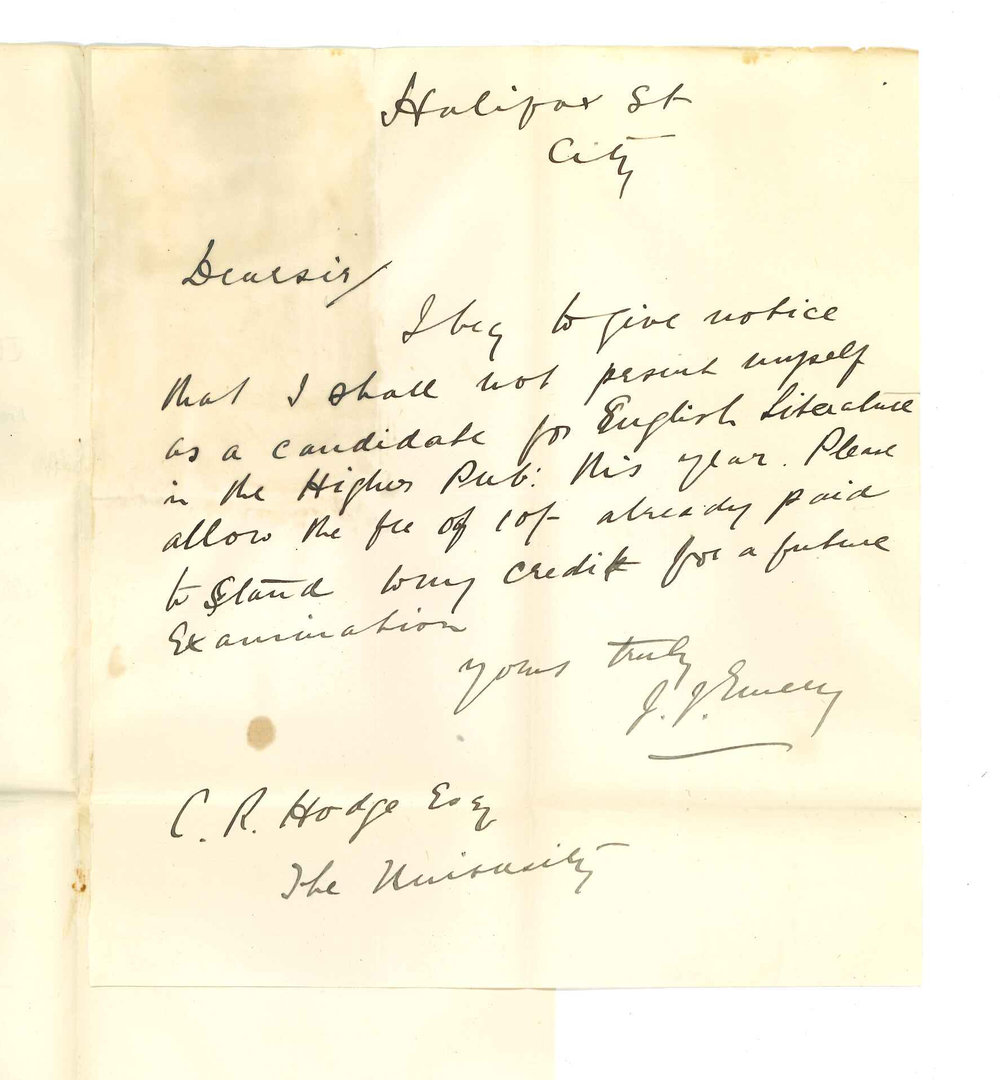 Halifax St
City
Dear sir/
I beg to give notice
that I shall not present myself
as a candidate for English Literature
in the Higher Pub: this year. Please
allow the fee of 10/- already paid
to stand to my credit for a future
Examination
yours truly
J. J. Emery
C. R. Hodge Esq
The University